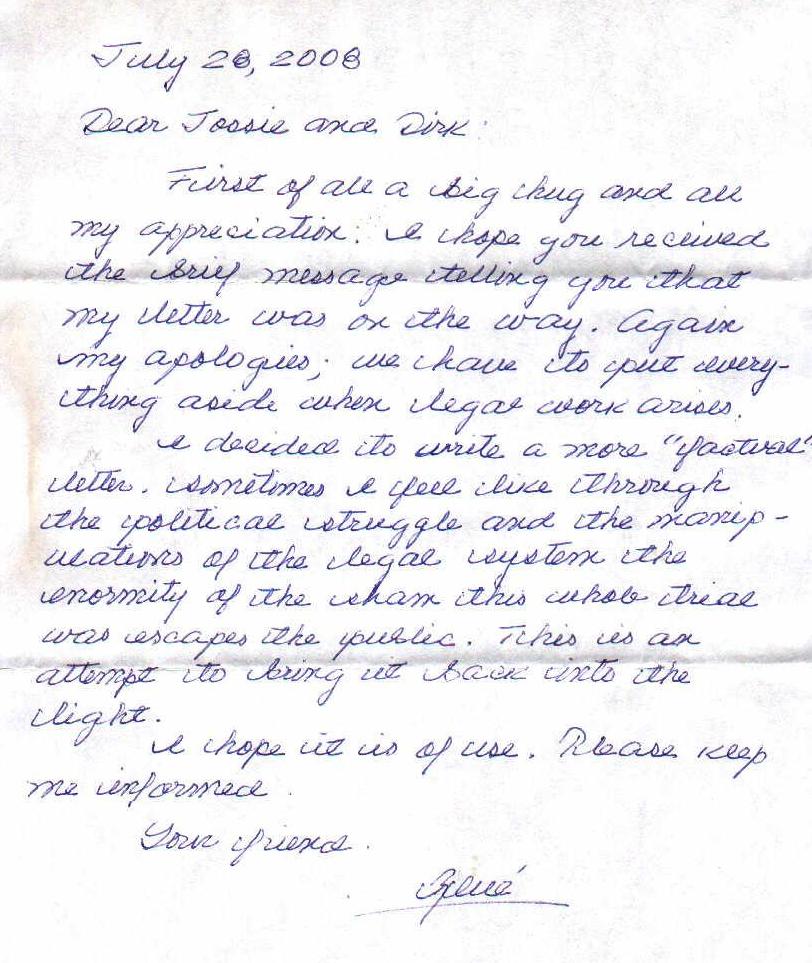 July 28, 2008
Dear Jossie and Dirk:
First of all a big hug and all
my appreciation. I hope you received
the brief message telling you that
my letter was on the way. Again
my apologies; we have to put every-
thing aside when legal work arises.
I decided to write a more "factual"
letter. Sometimes I feel like through
the political struggle and the manip-
ulations of the legal system the
enormity of the sham this whole trial
was escapes the public. This is an
attempt to bring it back into the
light.
I hope it is of use. Please keep
me informed.
Your friend.
René